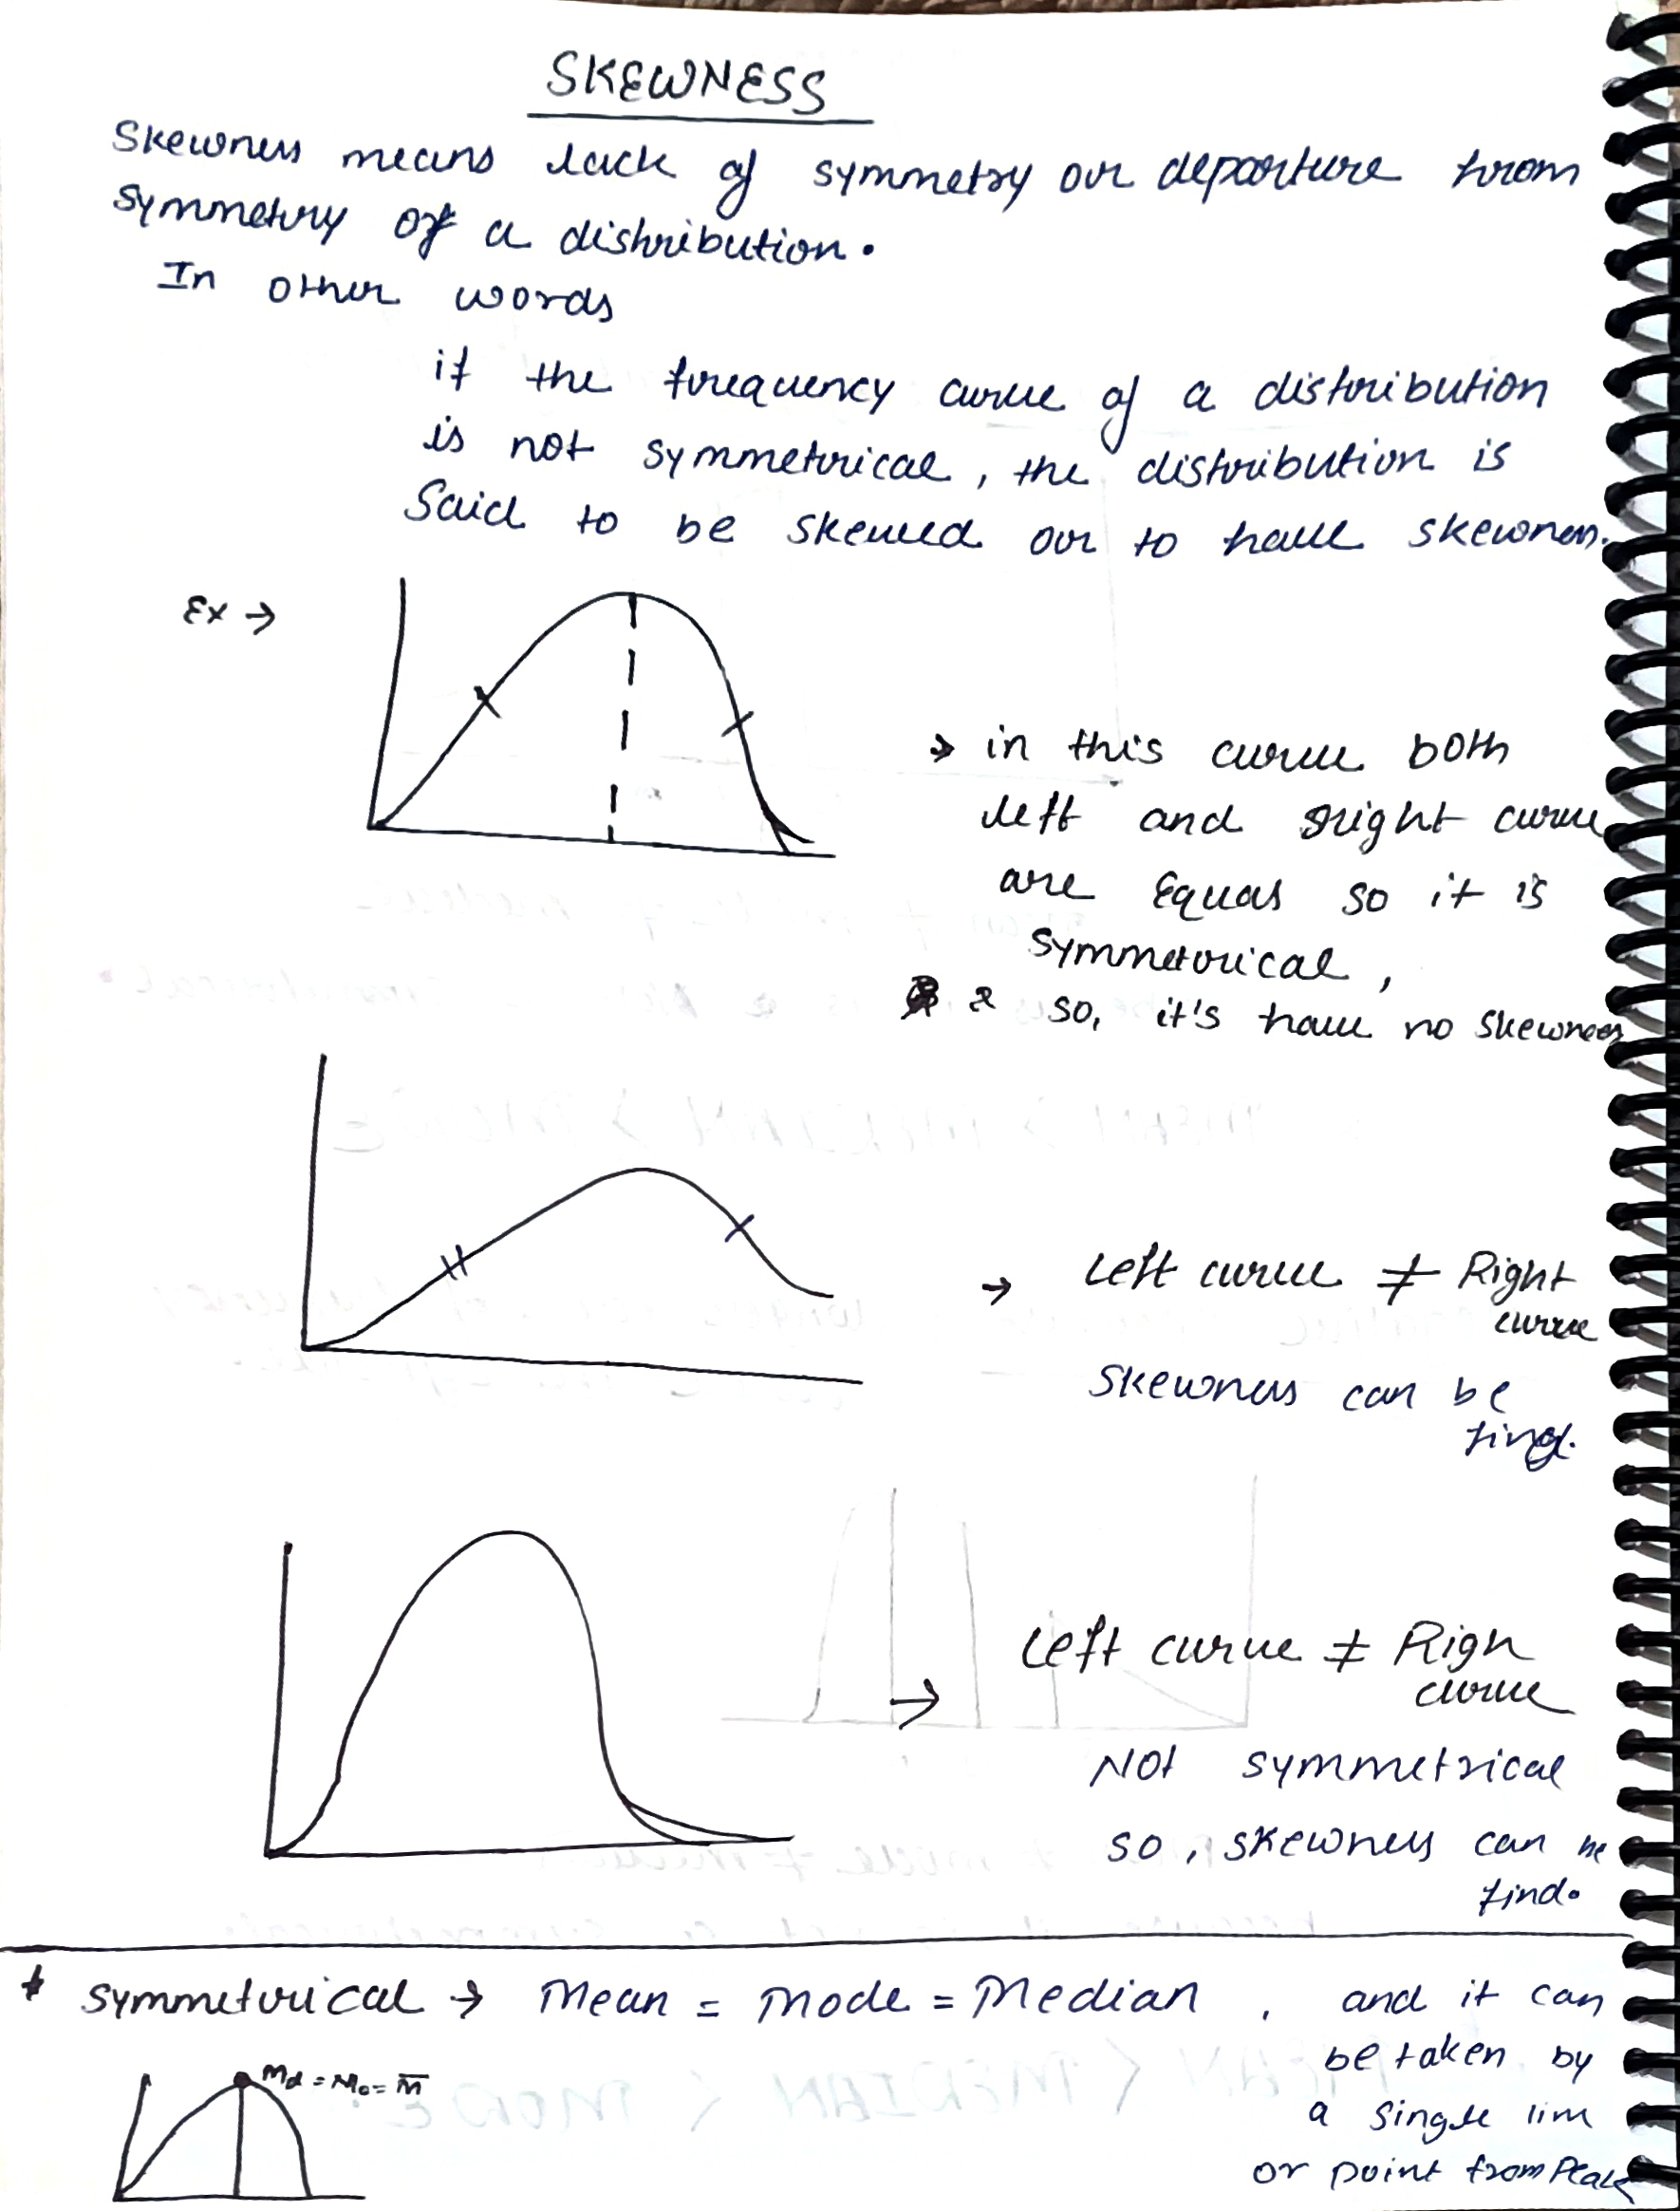 SKEWNESS
Skewness means lack of symmetry or departure from
symmetry of a distribution.
In other words
if the frequency curve of a distribution
is not symmetrical, the distribution is
Said to be skewed or to have skewness.
Ex →
→ in this curve both
left and right curve
are Equal so it is
symmetrical,
so, it's have no skewness
→ Left curve ≠ Right
curve
Skewness can be
find.
→ Left curve ≠ Righ
curve
Not symmetrical
so, skewness can be
find.
* symmetrical → Mean = Mode = Median , and it can
be taken by
a single line
or point from Peak
Md = Mo = M̅